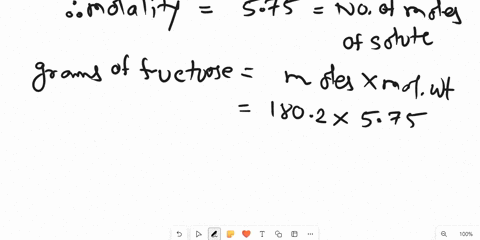 ∴molality = 5.75 = No. of moles
of solute
grams of fructose = moles × mol. wt
= 180.2 × 5.75
100%